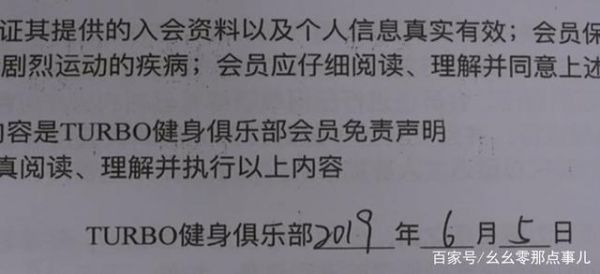 证其提供的入会资料以及个人信息真实有效；会员保
剧烈运动的疾病；会员应仔细阅读、理解并同意上述
内容是TURBO健身俱乐部会员免责声明
真阅读、理解并执行以上内容
TURBO健身俱乐部2019年6月5日
百家号/幺幺零那点事儿